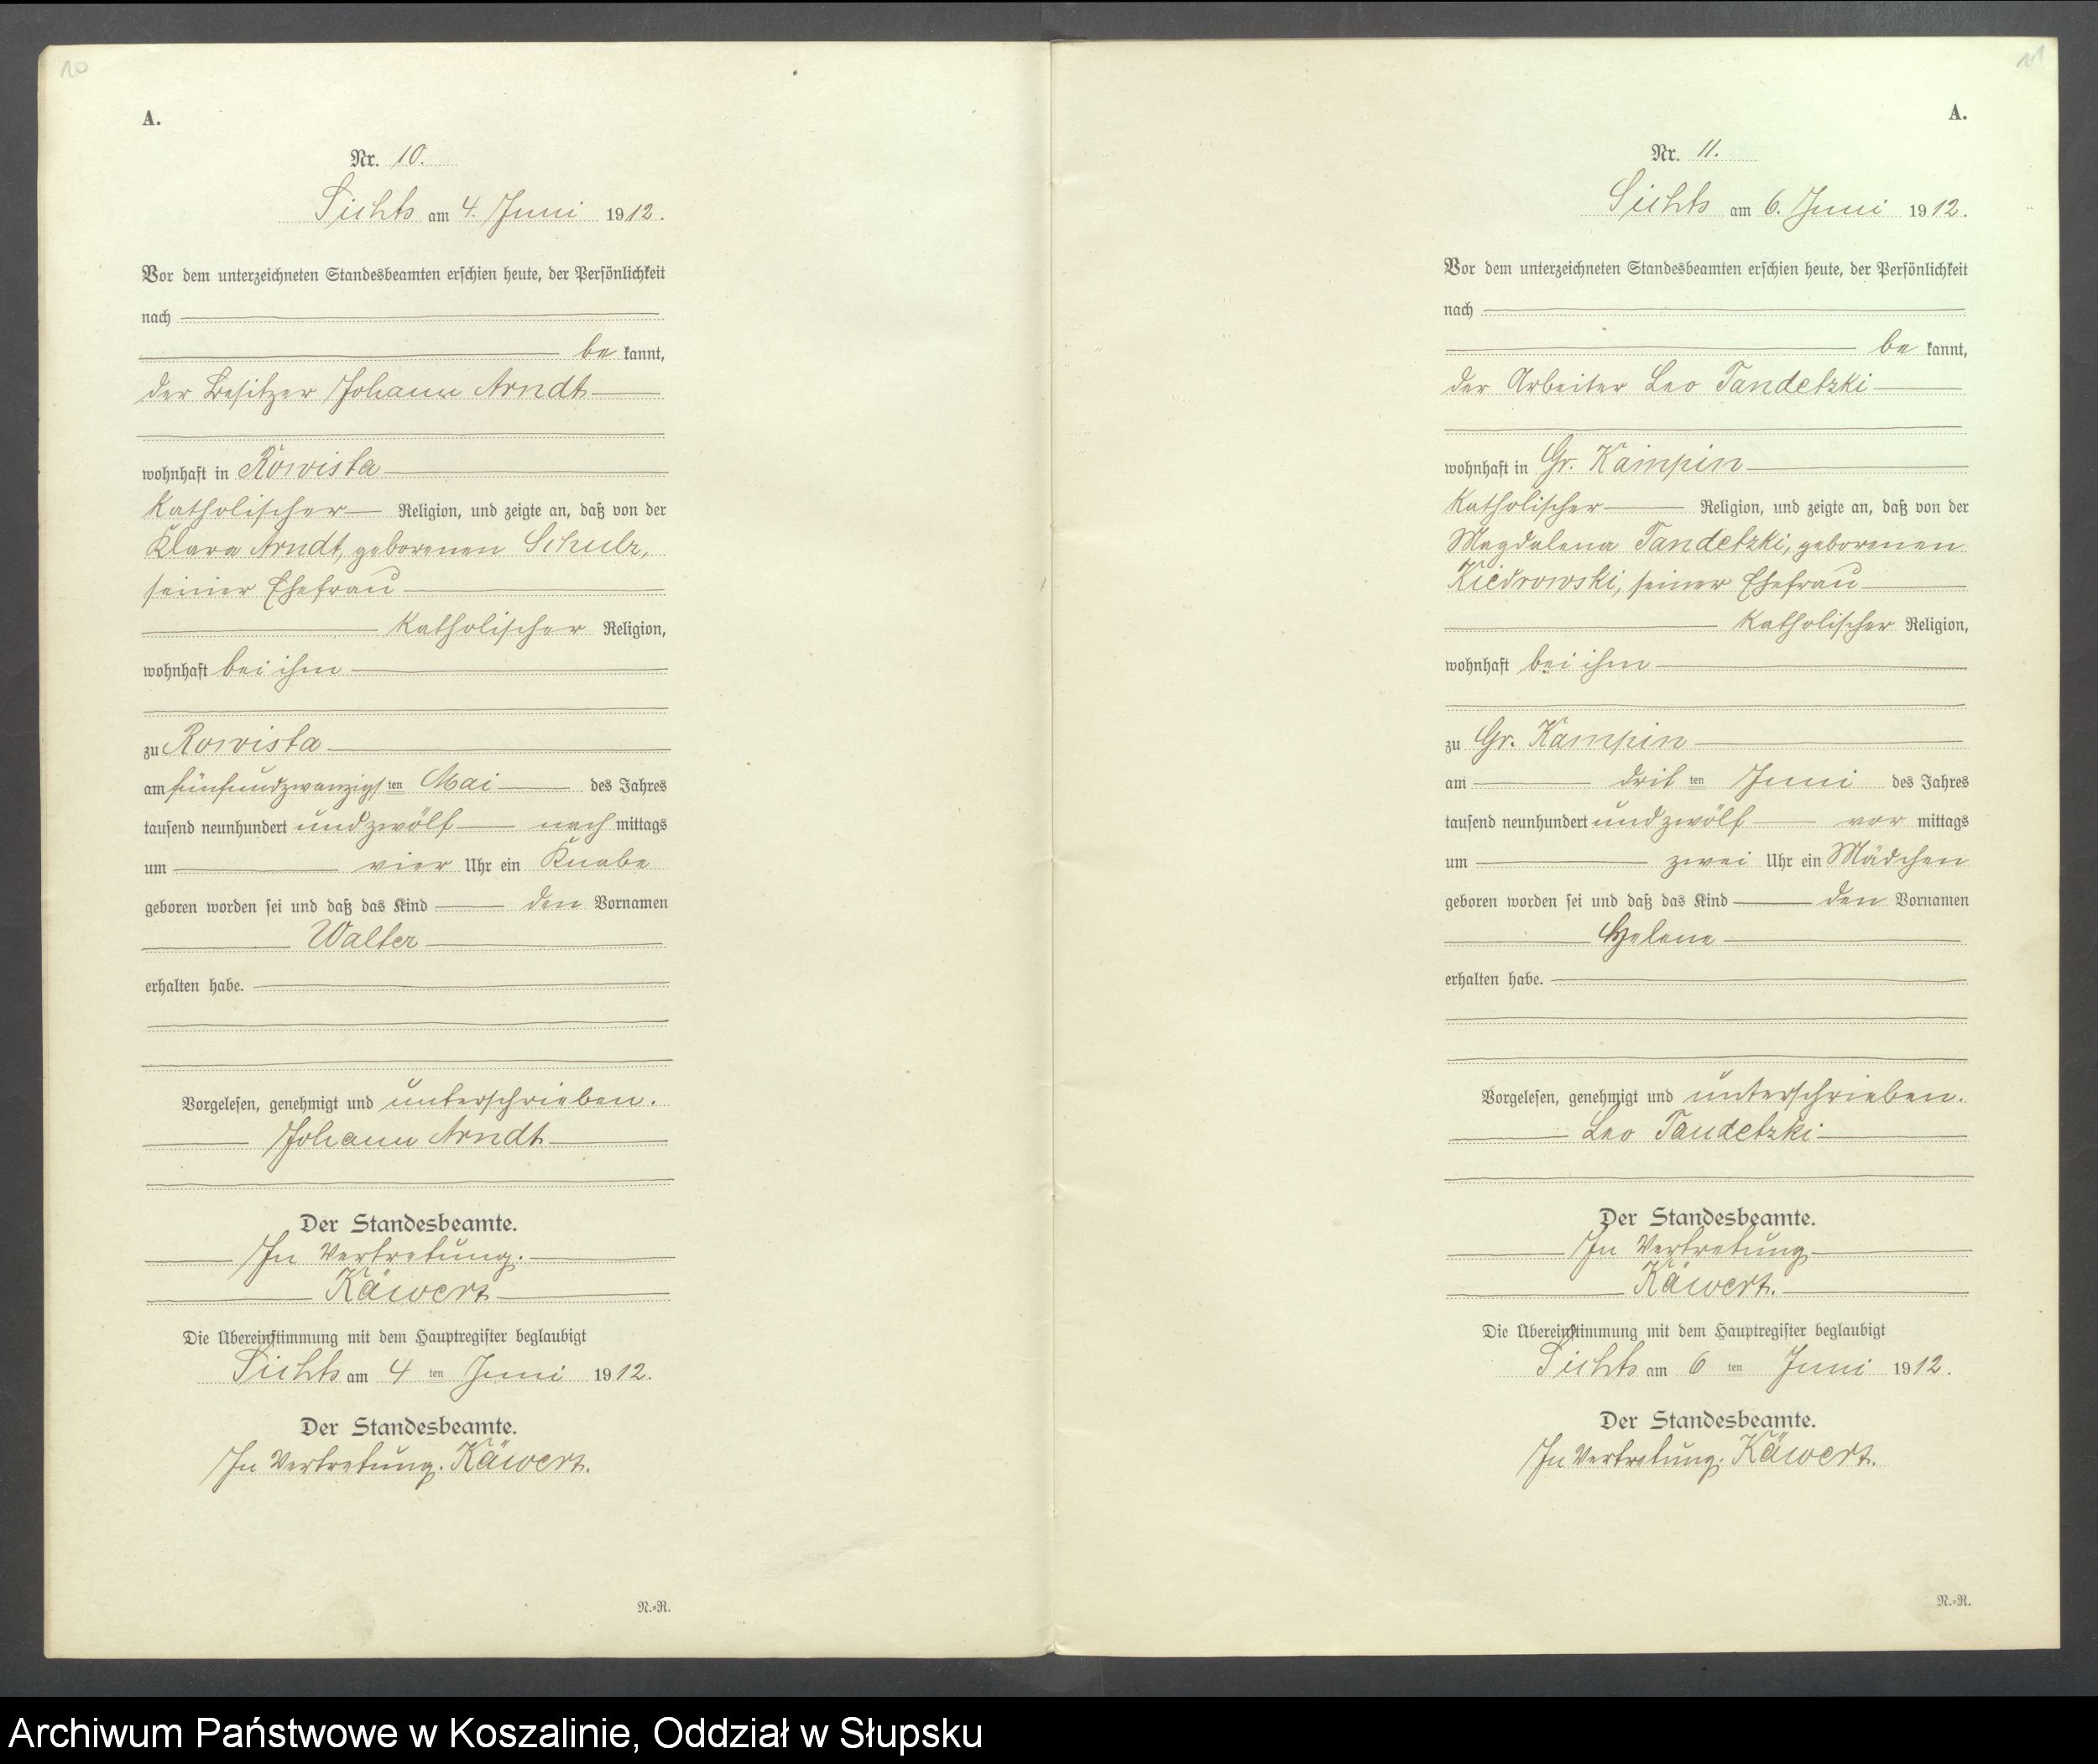 10
A.
Nr. 10.
Sichts am 4. Juni 1912.
Vor dem unterzeichneten Standesbeamten erschien heute, der Persönlichkeit
nach
be kannt,
der Besitzer Johann Arndt
wohnhaft in Rowista
katholischer Religion, und zeigte an, daß von der
Klara Arndt, geborenen Schulz,
seiner Ehefrau
katholischer Religion,
wohnhaft bei ihm
zu Rowista
am fünfundzwanzigs ten Mai des Jahres
tausend neunhundert und zwölf nach mittags
um vier Uhr ein Knabe
geboren worden sei und daß das Kind den Vornamen
Walter
erhalten habe.
Vorgelesen, genehmigt und unterschrieben.
Johann Arndt
Der Standesbeamte.
In Vertretung.
Käwert
Die Übereinstimmung mit dem Hauptregister beglaubigt
Sichts am 4 ten Juni 1912.
Der Standesbeamte.
In Vertretung. Käwert.
N.=R.
11
A.
Nr. 11.
Sichts am 6. Juni 1912.
Vor dem unterzeichneten Standesbeamten erschien heute, der Persönlichkeit
nach
be kannt,
der Arbeiter Leo Tandetzki
wohnhaft in Gr. Kampin
katholischer Religion, und zeigte an, daß von der
Magdalena Tandetzki, geborenen
Kiedrowski, seiner Ehefrau
katholischer Religion,
wohnhaft bei ihm
zu Gr. Kampin
am drit ten Juni des Jahres
tausend neunhundert und zwölf vor mittags
um zwei Uhr ein Mädchen
geboren worden sei und daß das Kind den Vornamen
Helene
erhalten habe.
Vorgelesen, genehmigt und unterschrieben.
Leo Tandetzki
Der Standesbeamte.
In Vertretung
Käwert.
Die Übereinstimmung mit dem Hauptregister beglaubigt
Sichts am 6 ten Juni 1912.
Der Standesbeamte.
In Vertretung. Käwert.
N.=R.
Archiwum Państwowe w Koszalinie, Oddział w Słupsku